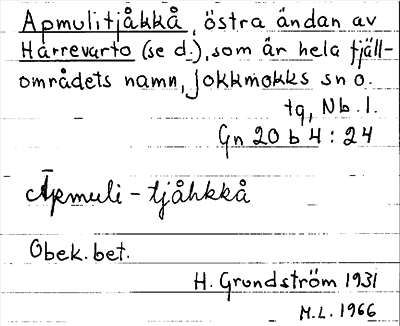 Apmulitjåkkå, östra ändan av
Hárrevarto (se d.), som är hela fjäll-
områdets namn, Jokkmokks sn o.
tg, Nb. l.
Gn 20 b 4 : 24
Āpmuli - tjåhkkå
Obek. bet.
H. Grundström 1931
M.L. 1966